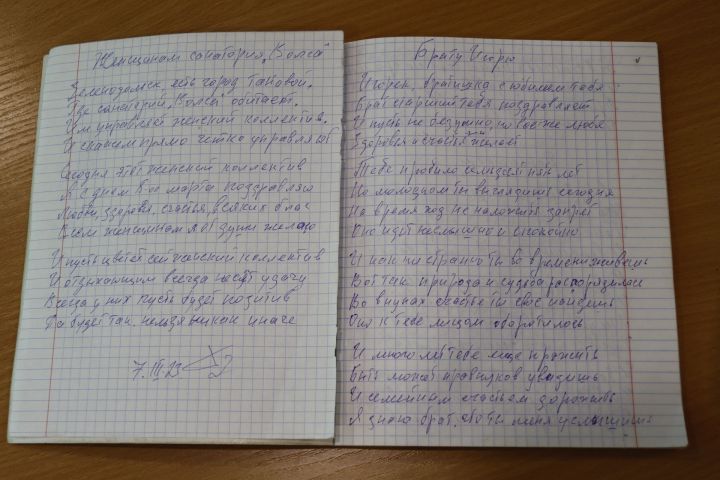 Женщинам санатория „Волга"
Зеленодольск, есть город таковой.
Где санаторий „Волга обитает.
Им управляет женский коллектив.
И скажем прямо чётко управляет
Сегодня этот женский коллектив
Я с днём 8го марта поздравляю
Любви, здоровья, счастья, всяких благ
Всем женщинам я от души желаю
И пусть цветёт сей женский коллектив
И отдыхающим всегда несёт удачу
Всегда у них пусть будет позитив
Да будет так. нельзя никак иначе
7.III.23
Брату Игорю
Игорёк, братишка с юбилеем тебя
Брат старший тебя поздравляет
И пусть не безумно, но всё же любя
Здоровья и счастья желает
Тебе пробило семьдесят пять лет
Но молодцом ты выглядишь сегодня
На время ход не наложить запрет
Оно идёт неслышно и спокойно
И как ни странно ты во времени живёшь
Вот так природа и судьба распорядилась
Во внуках счастье ты своё найдёшь
Оно к тебе лицом оборотилось
И много лет тебе ещё прожить
Быть может правнуков увидишь
И семейным счастьем дорожить
Я знаю брат, что ты меня услышишь